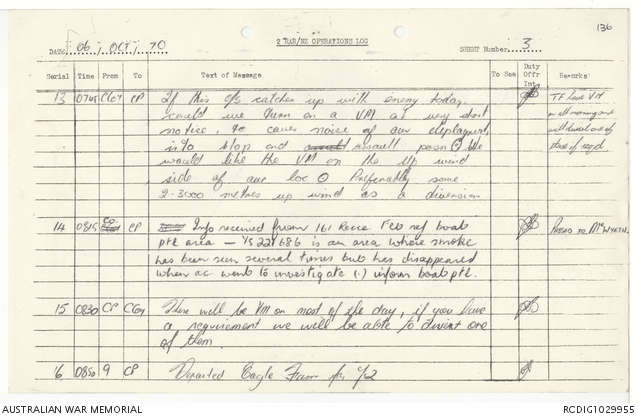 136
2 RAR/NZ OPERATIONS LOG
DATE 06 / OCT / 70
SHEET Number 3
Serial Time From To Text of Message To See Duty Offr Int. Remarks
13 CP If this c/s catches up with enemy today,
could we them on a VM at very short
notice, to cover noise of our deployment,
is to stop and posn We
would like the VM on the up wind
side of our loc Preferably some
2-3000 metres up wind as a diversion
TF have VM
14 0815 CO CP Info received from 161 Recce Flt ref boat
ptl area — YS 228686 is an area where smoke
has been seen several times but has disappeared
when ac went to investigate (.) inform boat ptl.
Passed to
15 0830 CP There will be VM on most of the day, if you have
a requirement we will be able to divert one
of them
16 0850 9 CP Departed Eagle Farm
AUSTRALIAN WAR MEMORIAL
RCDIG1029955